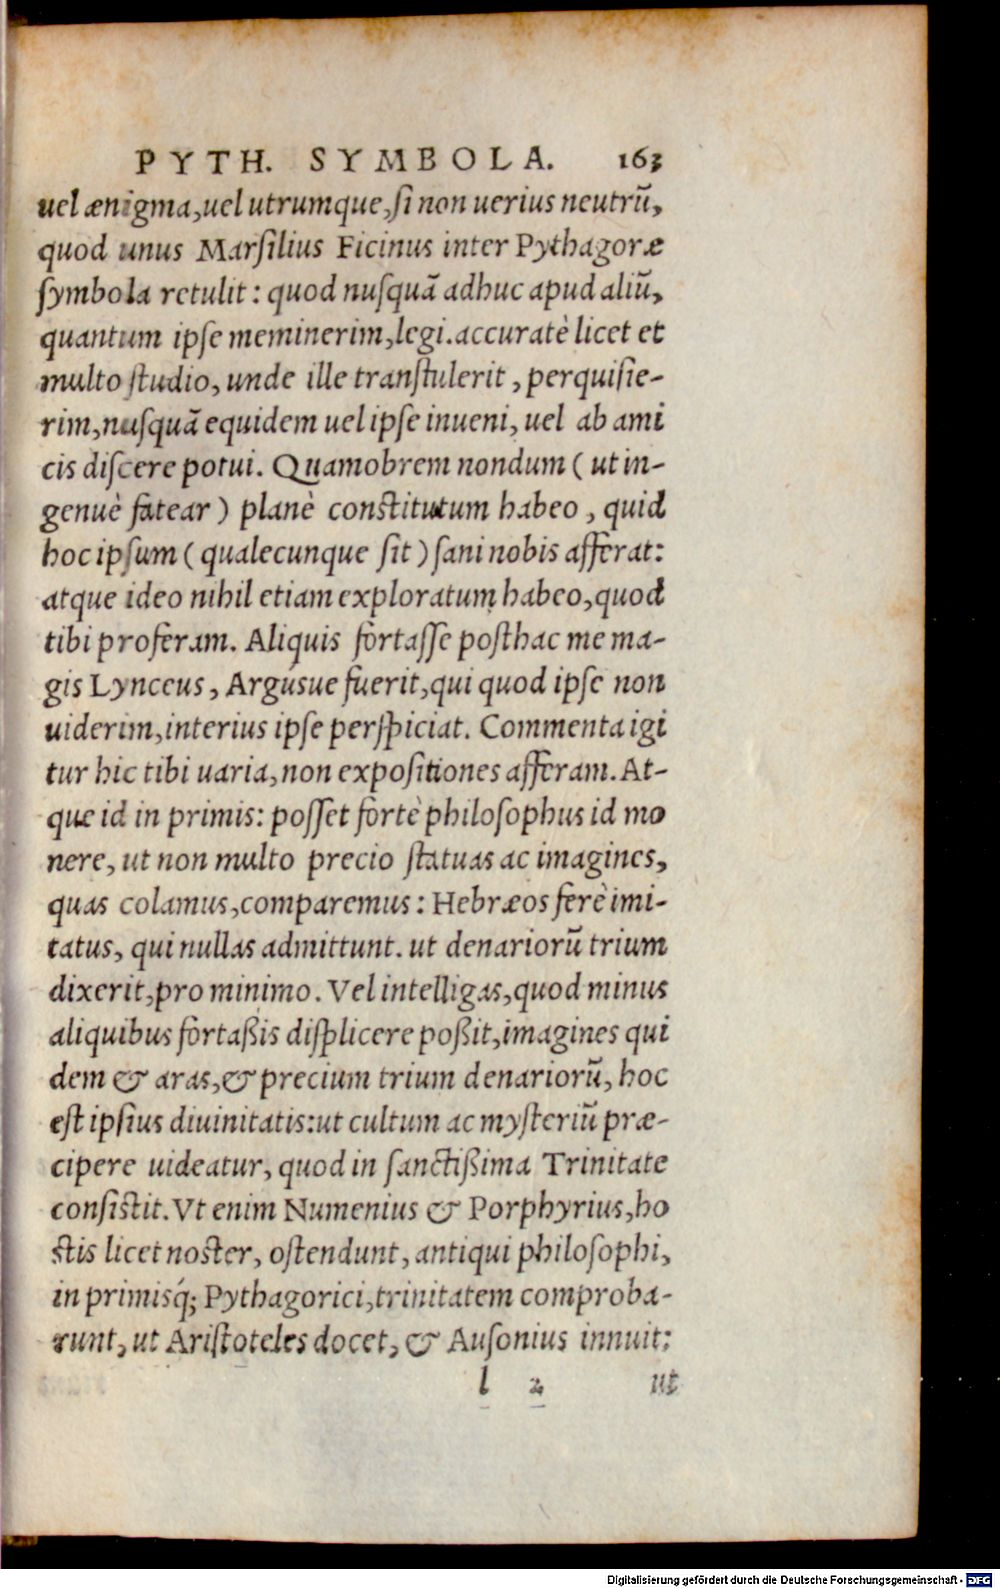 PYTH. SYMBOLA. 163
uel ænigma, uel utrumque, si non uerius neutrũ,
quod unus Marsilius Ficinus inter Pythagoræ
symbola retulit: quod nusquã adhuc apud aliũ,
quantum ipse meminerim, legi. accuratè licet et
multo studio, unde ille transtulerit, perquisie-
rim, nusquã equidem uel ipse inueni, uel ab ami
cis discere potui. Quamobrem nondum (ut in-
genuè fatear) planè constitutum habeo, quid
hoc ipsum (qualecunque sit) sani nobis afferat:
atque ideo nihil etiam exploratum habeo, quod
tibi proferam. Aliquis fortasse posthac me ma-
gis Lynceus, Argúsue fuerit, qui quod ipse non
uiderim, interius ipse perspiciat. Commenta igi
tur hic tibi uaria, non expositiones afferam. At-
que id in primis: posset fortè philosophus id mo
nere, ut non multo precio statuas ac imagines,
quas colamus, comparemus: Hebræos ferè imi-
tatus, qui nullas admittunt. ut denariorũ trium
dixerit, pro minimo. Vel intelligas, quod minus
aliquibus fortaßis displicere poßit, imagines qui
dem & aras, & precium trium denariorũ, hoc
est ipsius diuinitatis: ut cultum ac mysteriũ præ-
cipere uideatur, quod in sanctißima Trinitate
consistit. Vt enim Numenius & Porphyrius, ho
stis licet noster, ostendunt, antiqui philosophi,
in primisq́; Pythagorici, trinitatem comproba-
runt, ut Aristoteles docet, & Ausonius innuit:
l 2 ut
Digitalisierung gefördert durch die Deutsche Forschungsgemeinschaft - DFG